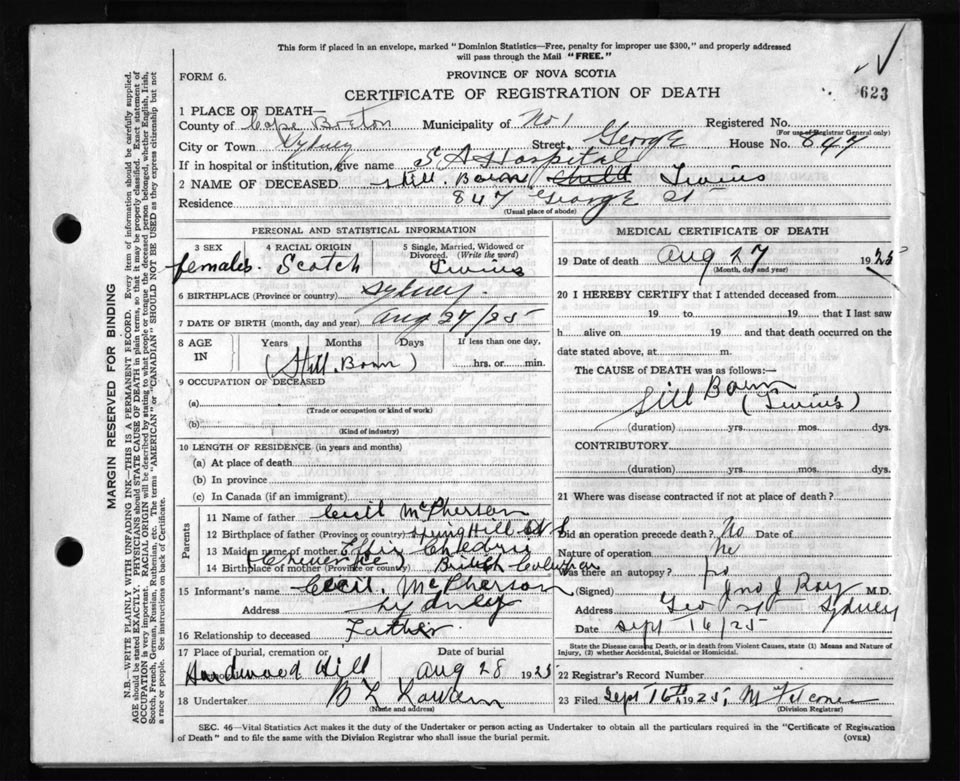 This form if placed in an envelope, marked "Dominion Statistics—Free, penalty for improper use $300," and properly addressed
will pass through the Mail "FREE."
FORM 6.
PROVINCE OF NOVA SCOTIA
623
CERTIFICATE OF REGISTRATION OF DEATH
1 PLACE OF DEATH—
County of Cape Breton Municipality of No 1 Registered No.
(For use of Registrar General only)
City or Town Sydney Street, George House No. 847
If in hospital or institution, give name S A Hospital
2 NAME OF DECEASED Still. Born Child Twins
Residence 847 George St
(Usual place of abode)
PERSONAL AND STATISTICAL INFORMATION
3 SEX 4 RACIAL ORIGIN 5 Single, Married, Widowed or
Divorced. (Write the word)
females. Scotch Twins
6 BIRTHPLACE (Province or country) Sydney.
7 DATE OF BIRTH (month, day and year) Aug 27/25
8 AGE IN Years Months Days If less than one day,
(Still. Born) hrs. or min.
9 OCCUPATION OF DECEASED
(a)
(Trade or occupation or kind of work)
(b)
(Kind of industry)
10 LENGTH OF RESIDENCE (in years and months)
(a) At place of death
(b) In province
(c) In Canada (if an immigrant)
Parents
11 Name of father Cecil McPherson
12 Birthplace of father (Province or country) Spring Hill N S
13 Maiden name of mother Effie
14 Birthplace of mother (Province or country) British
15 Informant's name Cecil. McPherson
Address Sydney
16 Relationship to deceased Father.
17 Place of burial, cremation or Date of burial
Hardwood Hill Aug 28 1925
18 Undertaker B L
(Name and address)
MEDICAL CERTIFICATE OF DEATH
19 Date of death Aug 27 1925
(Month, day and year)
20 I HEREBY CERTIFY that I attended deceased from
19 to 19 that I last saw
h alive on 19 and that death occurred on the
date stated above, at m.
The CAUSE of DEATH was as follows:—
Still Born
(Twins)
(duration) yrs. mos. dys.
CONTRIBUTORY.
(duration) yrs. mos. dys.
21 Where was disease contracted if not at place of death?
Did an operation precede death? No Date of
Nature of operation
Was there an autopsy? No
(Signed) Jno J Roy M.D.
Address Geo St Sydney
Date Sept 16/25
State the Disease causing Death, or in death from Violent Causes, state (1) Means and Nature
of Injury, (2) whether Accidental, Suicidal or Homicidal.
22 Registrar's Record Number
23 Filed Sept 16th 1925,
(Division Registrar)
SEC. 46—Vital Statistics Act makes it the duty of the Undertaker or person acting as Undertaker to obtain all the particulars required in the "Certificate of Registration
of Death" and to file the same with the Division Registrar who shall issue the burial permit. (OVER)
MARGIN RESERVED FOR BINDING
N.B.—WRITE PLAINLY WITH UNFADING INK—THIS IS A PERMANENT RECORD. Every item of information should be carefully supplied.
AGE should be stated EXACTLY. PHYSICIANS should STATE CAUSE OF DEATH in plain terms, so that it may be properly classified. Exact statement of
OCCUPATION is very important. RACIAL ORIGIN will be described by stating to what people or tongue the deceased person belonged, whether English, Irish,
Scotch, French, German, Russian, Ruthenian, etc. The terms "AMERICAN" or "CANADIAN" SHOULD NOT BE USED as they express citizenship but not
a race or people. See instructions on back of Certificate.